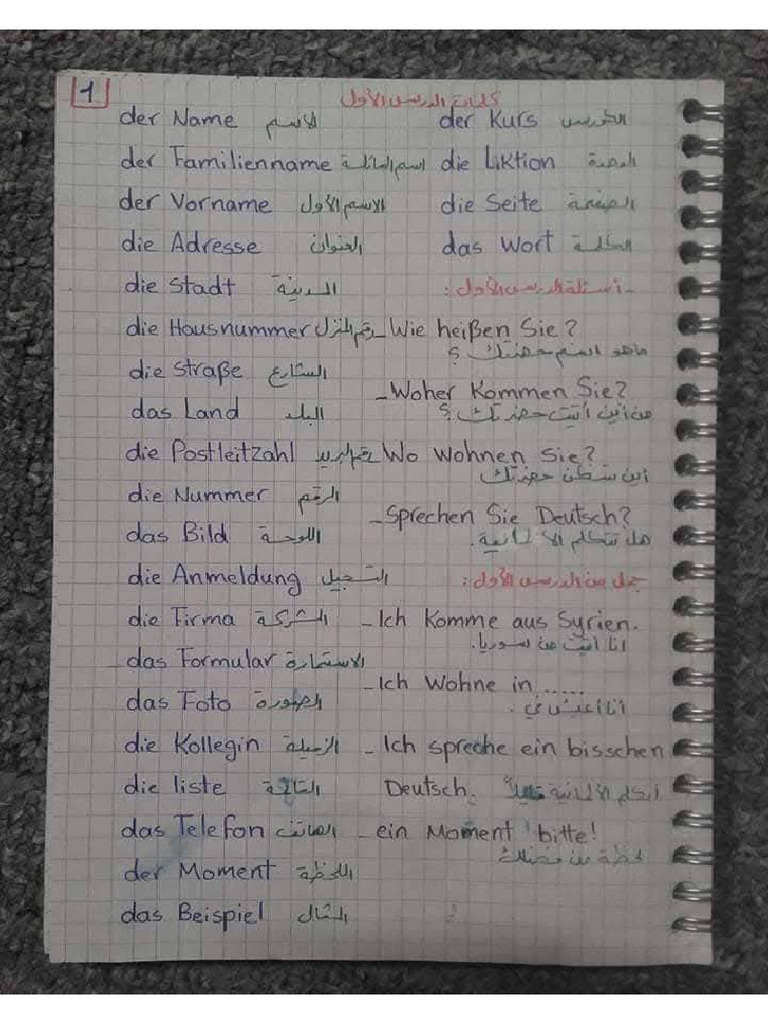 1
كلمات الدرس الأول
der Name الاسم
der Familienname اسم العائلة
der Vorname الاسم الأول
die Adresse العنوان
die Stadt المدينة
die Hausnummer رقم المنزل
die Straße الشارع
das Land البلد
die Postleitzahl رقم البريد
die Nummer الرقم
das Bild اللوحة
die Anmeldung التسجيل
die Firma الشركة
das Formular الاستمارة
das Foto الصورة
die Kollegin الزميلة
die liste القائمة
das Telefon الهاتف
der Moment اللحظة
das Beispiel المثال
der Kurs الكورس
die Liktion الوحدة
die Seite الصفحة
das Wort الكلمة
- أسئلة الدرس الأول:
- Wie heißen Sie?
ماهو اسم حضرتك ؟
- Woher Kommen Sie?
من أين أتيت حضرتك ؟
- Wo Wohnen Sie?
أين تسكن حضرتك
- Sprechen Sie Deutsch?
هل تتكلم الألمانية.
جمل من الدرس الأول:
- Ich Komme aus Syrien.
انا أتيت من سوريا.
- Ich Wohne in ......
أنا أعيش في .
- Ich spreche ein bisschen
Deutsch. أتكلم الألمانية قليلاً
- ein Moment bitte!
لحظة من فضلك